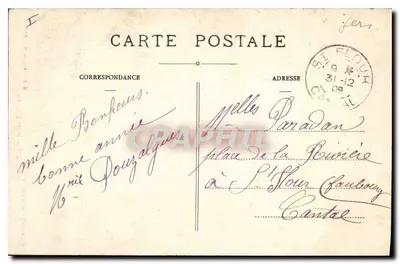 I
Gers
CARTE POSTALE
CORRESPONDANCE
ADRESSE
ST FLOUR
9
31-12
09
CANTAL
mille Bonheurs.
bonne année
Mrie Douzalgues
Melles Paradan
place de la Rivière
à St Flour (faubourg
Cantal
CARTAPHILIE